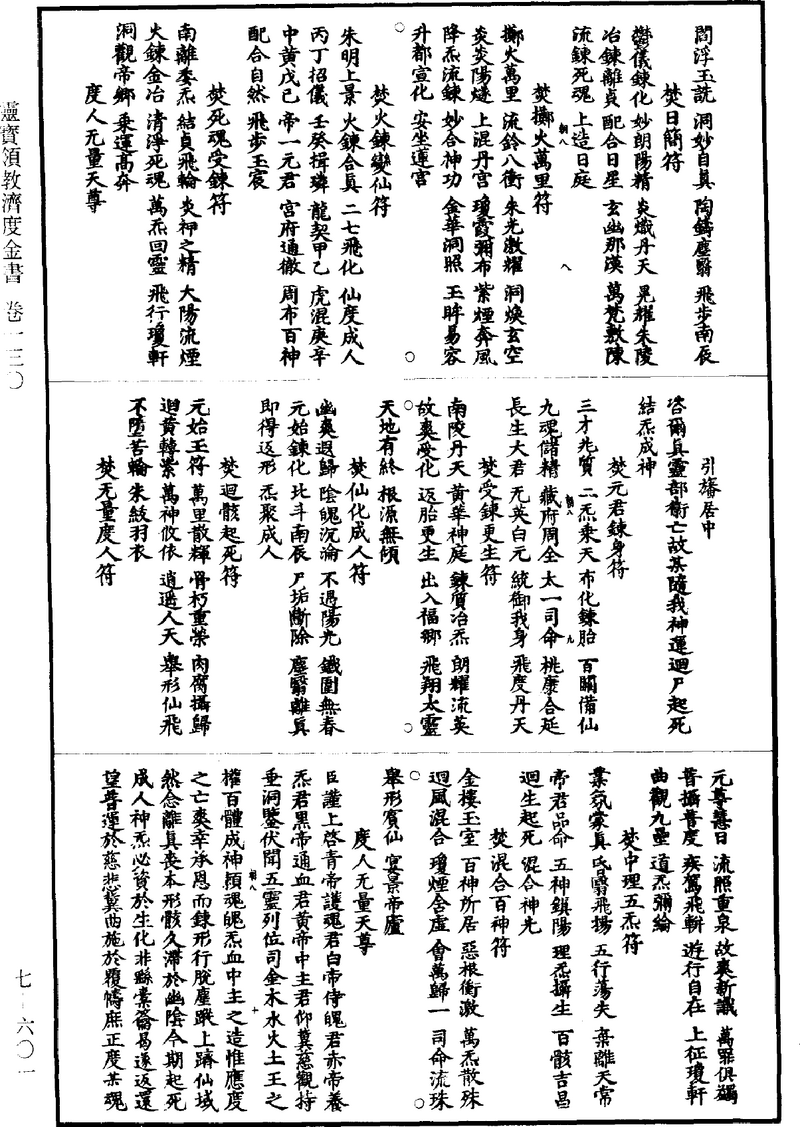 閻浮玉詵 洞妙自真 陶鑄塵翳 飛步南辰
焚日簡符
鬱儀鍊化 妙朗陽精 炎熾丹天 晃耀朱陵
冶鍊離貞 配合日星 玄幽那漢 萬梵敷陳
流鍊死魂 上造日庭
焚擲火萬里符
擲火萬里 流鈴八衝 朱光激耀 洞煥玄空
炎炎陽燧 上混丹宮 瓊霞彌布 紫煙奔風
降炁流鍊 妙合神功 金華洞照 玉眸易容
升都宣化 安坐蓮宮
焚火鍊變仙符
朱明上景 火鍊合真 二七飛化 仙度成人
丙丁招儀 壬癸揖璘 龍契甲乙 虎混庚辛
中黃戊己 帝一元君 宮府通徹 周布百神
配合自然 飛步玉宸
焚死魂受鍊符
南離季炁 結貞飛輪 炎神之精 大陽流煙
火鍊金冶 清淨死魂 萬炁回靈 飛行瓊軒
洞觀帝鄉 乘運高奔
度人无量天尊
引旛居中
咨爾真靈部衛亡故某隨我神運迴尸起死
結炁成神
焚元君鍊身符
三才兆質 二炁乘天 布化鍊胎 百關備仙
九魂儲精 藏府周全 太一司命 桃康合延
長生大君 无英白元 統御我身 飛度丹天
焚受鍊更生符
南陵丹天 黃華神庭 鍊質冶炁 朗耀流英
故爽受化 返胎更生 出入福鄉 飛翔太靈
天地有終 根源無傾
焚仙化成人符
幽爽遐歸 陰魄沉淪 不遇陽光 鐵圍無春
元始鍊化 北斗南辰 尸垢斷除 塵翳離真
即得返形 炁聚成人
焚迴骸起死符
元始玉符 萬里散輝 骨朽重榮 肉腐攝歸
迴黃轉紫 萬神攸依 逍遙人天 舉形仙飛
不墮苦輪 朱紱羽衣
焚无量度人符
元尊慧日 流照重泉 故爽新識 萬罪俱蠲
普攝普度 疾駕飛軿 遊行自在 上征瓊軒
曲觀九壘 道炁彌綸
焚中理五炁符
業氛蒙真 昏翳飛揚 五行蕩失 棄離天常
帝君品命 五神鎮陽 理炁攝生 百骸吉昌
迴生起死 混合神先
焚混合百神符
金樓玉室 百神所居 惡根衝激 萬炁散殊
迴風混合 瓊煙含虛 會萬歸一 司命流珠
舉形賓仙 宴景帝廬
度人无量天尊
臣謹上啓青帝護魂君白帝侍魄君赤帝養
炁君黑帝通血君黃帝中主君仰冀慈觀特
垂洞鑒伏聞五靈列位司金木水火土王之
權百體成神類魂魄炁血中主之造惟應度
之亡爽幸承恩而鍊形行脫塵蹤上躋仙域
然念離真喪本形骸久滯於幽陰今期起死
成人神炁必資於生化非繇橐籥曷遂返還
望普運於慈悲冀曲施於覆幬庶正度某魂
靈寶領教濟度金書 卷一三〇
七‧六〇一